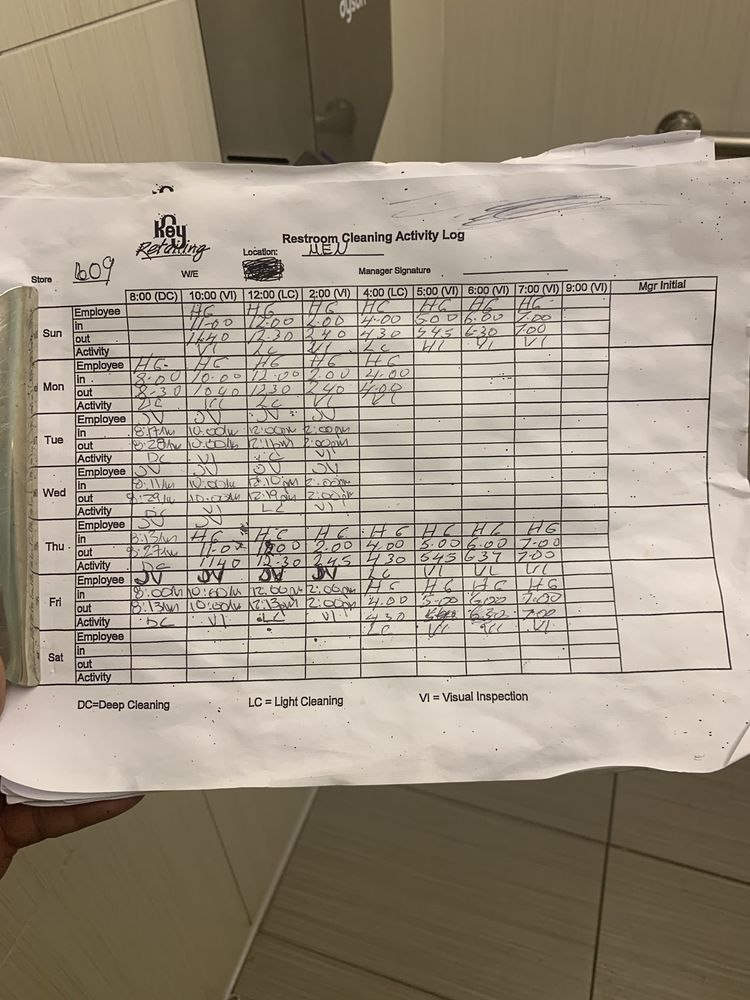 dyson
Key
Retailing
Restroom Cleaning Activity Log
Location: MEN
Store 609 W/E Manager Signature
8:00 (DC) 10:00 (VI) 12:00 (LC) 2:00 (VI) 4:00 (LC) 5:00 (VI) 6:00 (VI) 7:00 (VI) 9:00 (VI) Mgr Initial
Sun
Employee HG HG HG HG HG HG HG
in 11-00 12:00 2.00 4-00 500 6.00 7.00
out 1140 12.30 240 430 545 630 700
Activity VI LC VI LC VI VI VI
Mon
Employee HG HG HG HG HG
in 8-00 10.00 12.00 200 4-00
out 8-30 1040 1230 240 4.00
Activity DC VI LC VI VI
Tue
Employee JV JV JV JV
in 8:17am 10:00am 12:00pm 2:00pm
out 8:28am 10:00am 12:11pm 2:00pm
Activity DC VI LC VI
Wed
Employee JV JV JV JV
in 8:11am 10:00am 12:10pm 2:00pm
out 8:29am 10:03am 12:19pm 2:00pm
Activity DC VI LC VI
Thu
Employee JV JV
in 8:13am HG HG HG HG HG HG HG
out 8:27am 11.0 1200 2.00 4.00 5.00 6.00 7.00
Activity DC 1140 12.30 245 430 545 637 700
Fri
Employee JV JV JV JV LC VI VI VI
in 8:00am 10:00am 12:00pm 2:00pm HG HG HG HG
out 8:13am 10:00am 12:13pm 2:00pm 4.00 5.00 6:00 7:00
Activity DC VI LC VI 430 630 700
Sat
Employee LC VI VI VI
in
out
Activity
DC=Deep Cleaning LC = Light Cleaning VI = Visual Inspection